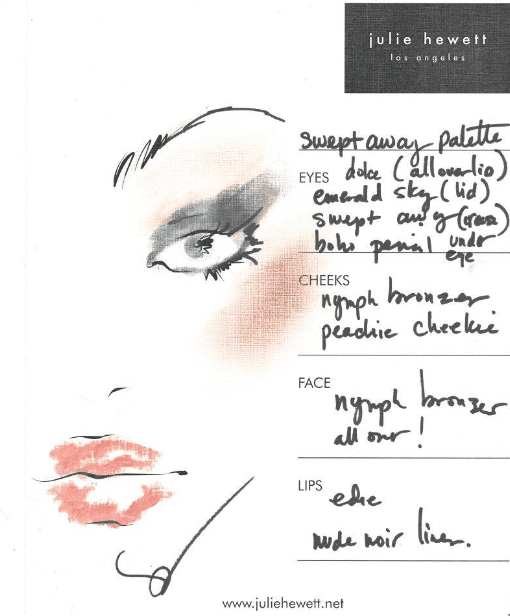 julie hewett
los angeles
swept away palette
EYES dolce (all over lid)
emerald sky (lid)
swept away (crease)
boho pencil under
eye
CHEEKS
nymph bronzer
peachie cheekie
FACE
nymph bronzer
all over!
LIPS
edie
nude noir liner.
www.juliehewett.net